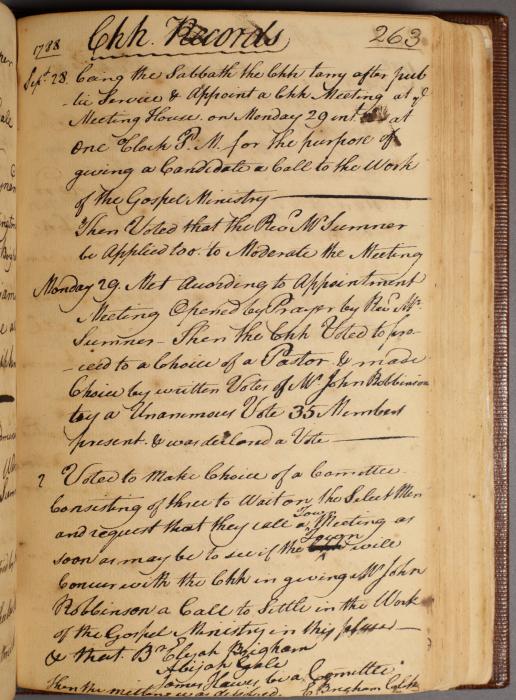 1788 Chh. Records 263
Sept. 28. being the Sabbath the Chh tarry after pub-
-lic Service & Appoint a Chh Meeting at ye
Meeting House on Monday 29 inst. at
one Clock P. M. for the purpose of
giving a Candidate a Call to the Work
of the Gospel Ministry
Then Voted that the Revd. Mr Sumner
be Applied too. to Moderate the Meeting
Monday 29. Met According to Appointment
Meeting Opened by Prayer by Revd. Mr.
Sumner - Then the Chh Voted to pro-
-ceed to a Choice of a Pastor. & made
Choice by written Votes of Mr John Robbinson
by a Unanimous Vote 35 Members
present. & was declared a Vote
2 Voted to Make Choice of a Committee
Consisting of three to Wait on the Select Men
and request that they call a Town Meeting as
soon as may be to see if the Town will
Concur with the Chh in giving Mr John
Robbinson a Call to Settle in the Work
of the Gospel Ministry in this place
& that. Br. Elijah Brigham
Abijah Gale
James Hawes be a Committee.
Then the meeting was dissolved. E Brigham